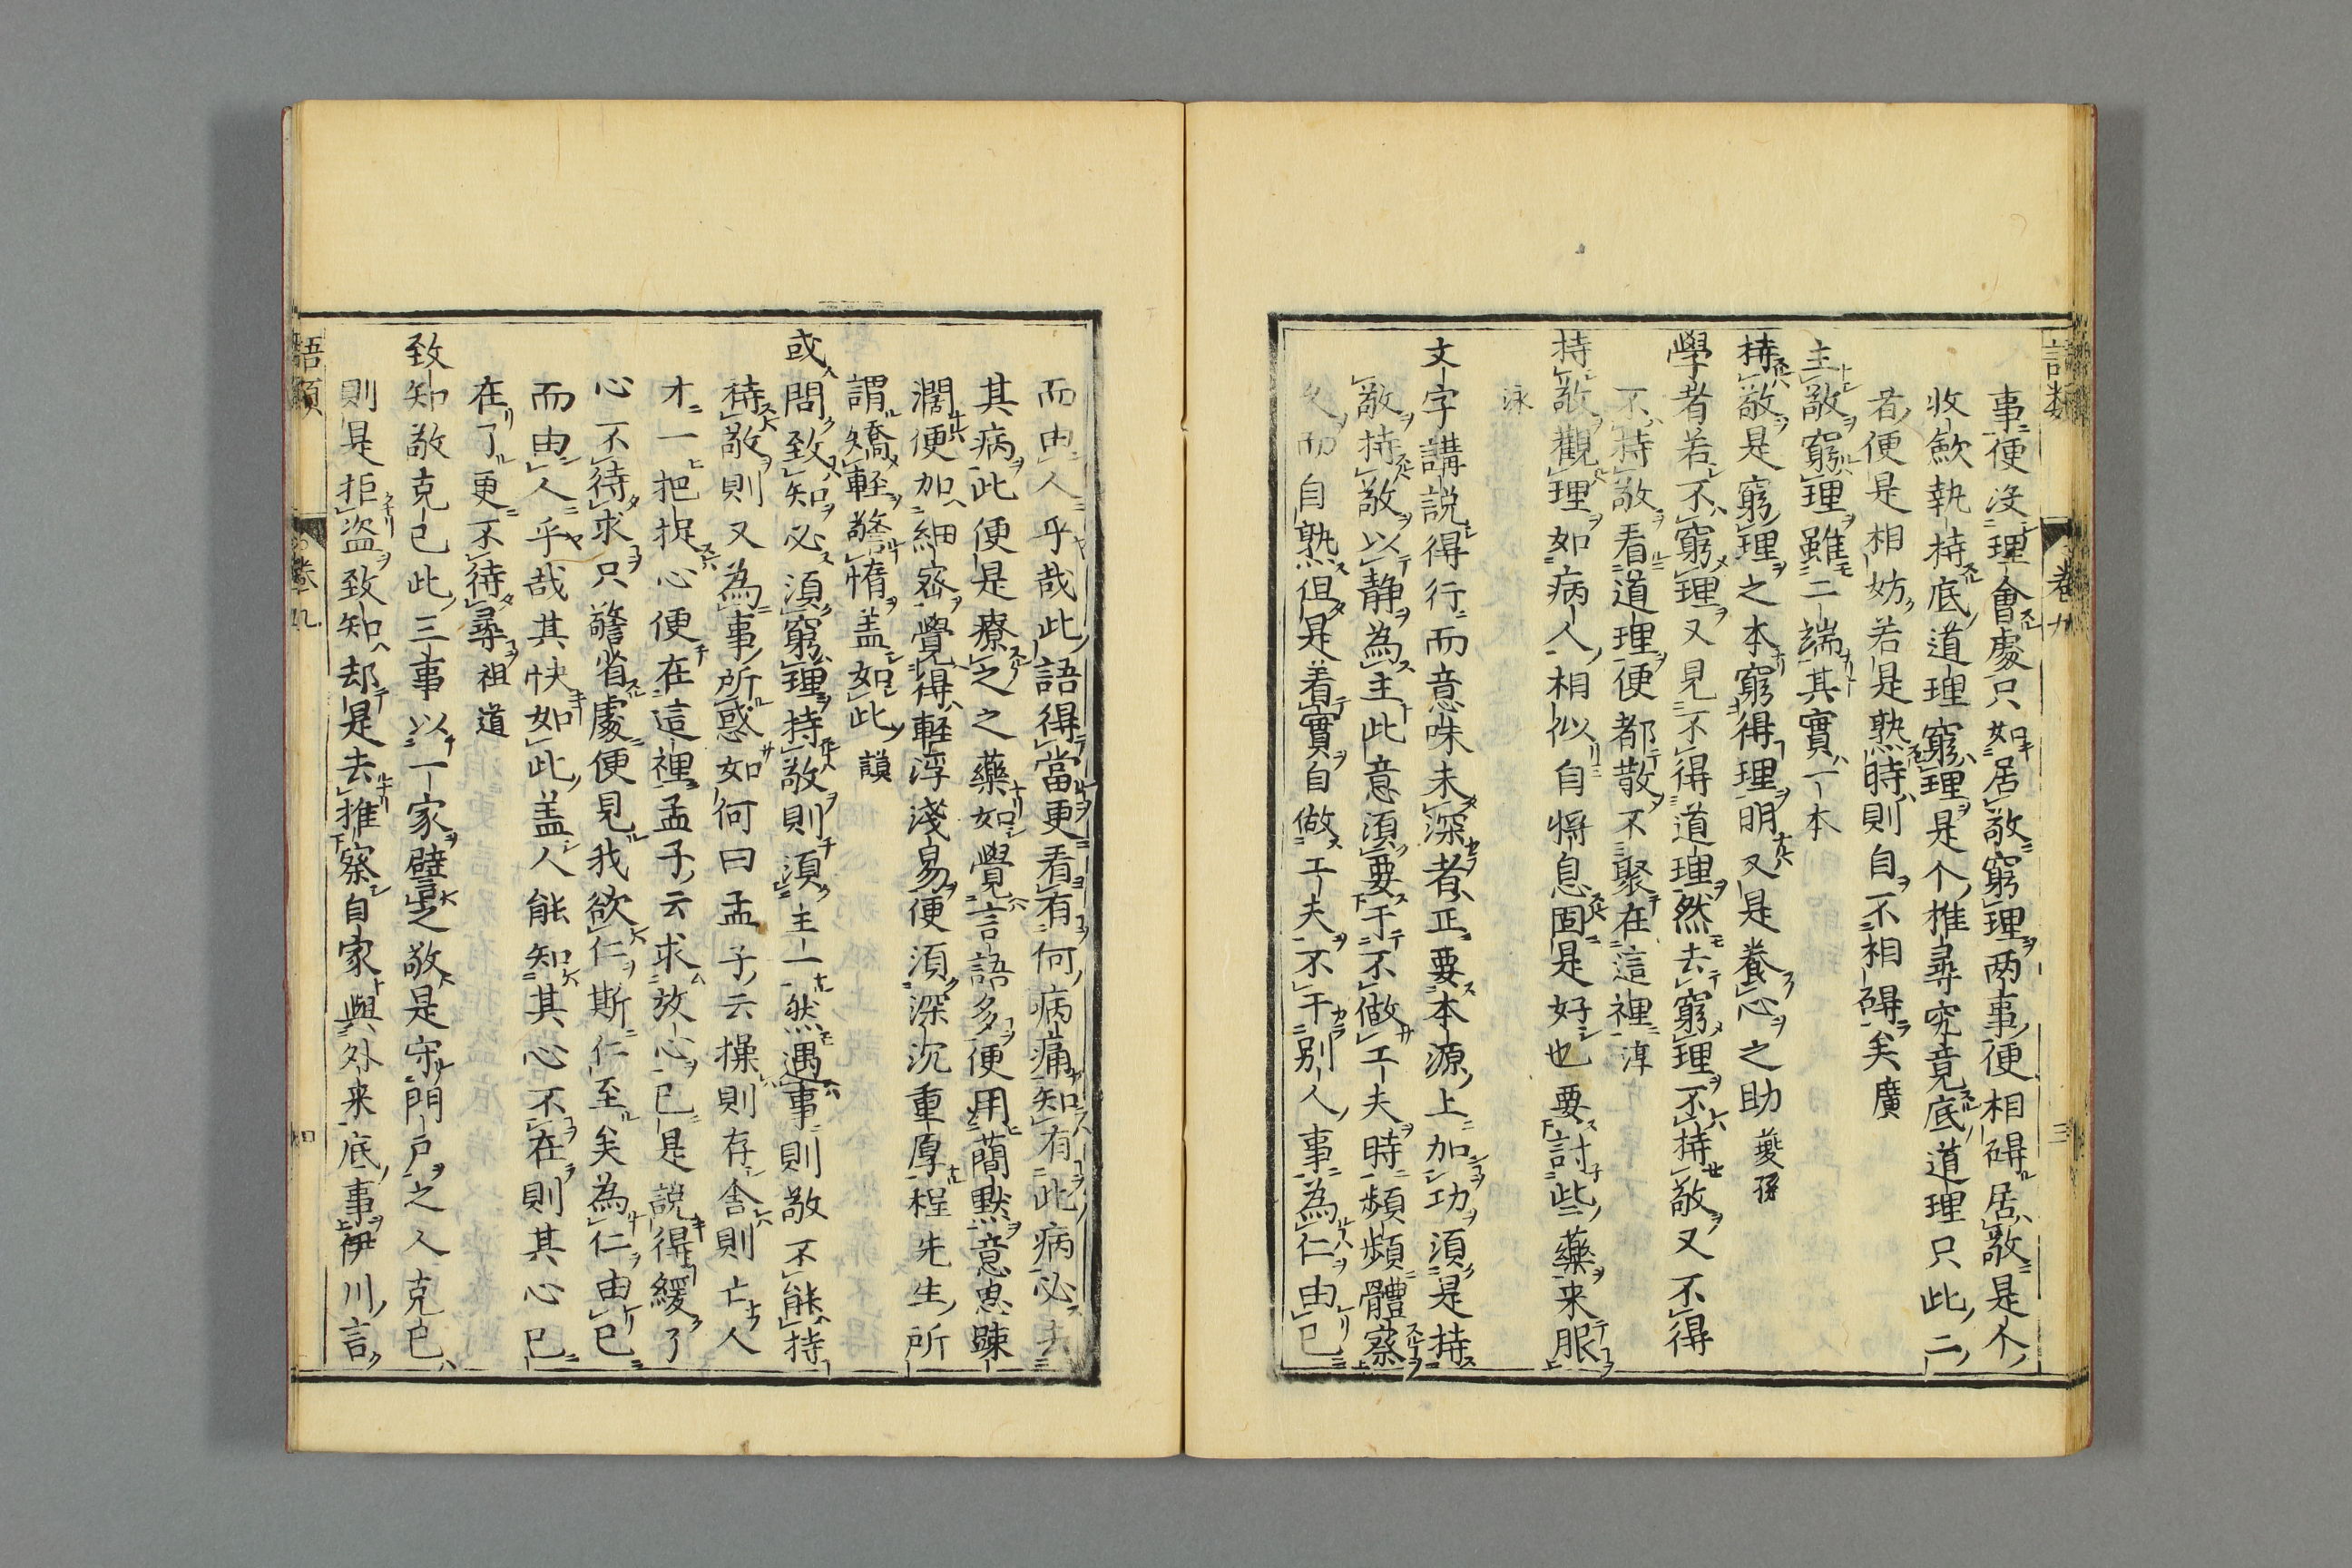 語類 卷九 三
事便沒理會處只如居敬窮理两事便相碍居敬是个
收斂執持底道理窮理是个推尋究竟底道理只此二
者便是相妨若是熟時則自不相碍矣廣
主敬窮理雖二端其實一本
持敬是窮理之本窮得理明又是養心之助 夔孫
學者若不窮理又見不得道理然去窮理不持敬又不得
不持敬看道理便都散不聚在這裡淳
持敬觀理如病人相似自將息固是好也要討些藥来服
泳
文字講說得行而意味未深者正要本源上加功須是持
敬持敬以静為主此意須要于不做工夫時頻頻體察
久而自熟但是着實自做工夫不干别人事為仁由己
而由人乎哉此語得當更看有何病痛知有此病必去
其病此便是療之之藥如覺言語多便用蕳默意思踈
濶便加細宻覺得軽浮淺易便須深沉重厚程先生所
謂矯軽警惰盖如此謨
或問致知必須窮理持敬則須主一然遇事則敬不能持
持敬則又為事所惑如何曰孟子云操則存舍則亡人
才一把捉心便在這裡孟子云求放心已是說得緩了
心不待求只警省處便見我欲仁斯仁至矣為仁由己
而由人乎哉其快如此盖人能知其心不在則其心已
在了更不待尋祖道
致知敬克己此三事以一家譬之敬是守門户之人克己
則是拒盗致知却是去推察自家與外来底事伊川言
語類 卷九 四